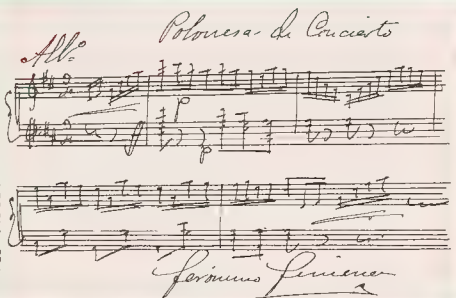 Polonesa de Concierto
All.º
ff
p
p
Jerónimo Jimenez